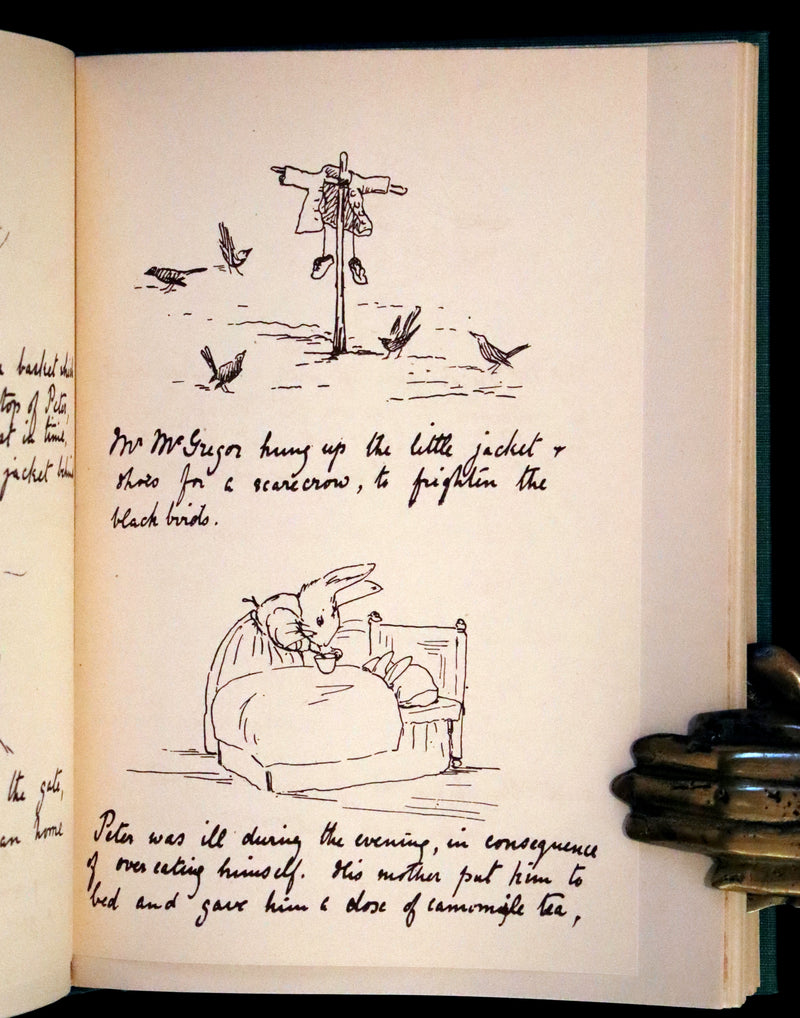 basket which
top of Peter,
in time,
jacket behind
the gate,
home
Mr McGregor hung up the little jacket +
shoes for a scarecrow, to frighten the
black birds.
Peter was ill during the evening, in consequence
of over eating himself. His mother put him to
bed and gave him a dose of camomile tea,